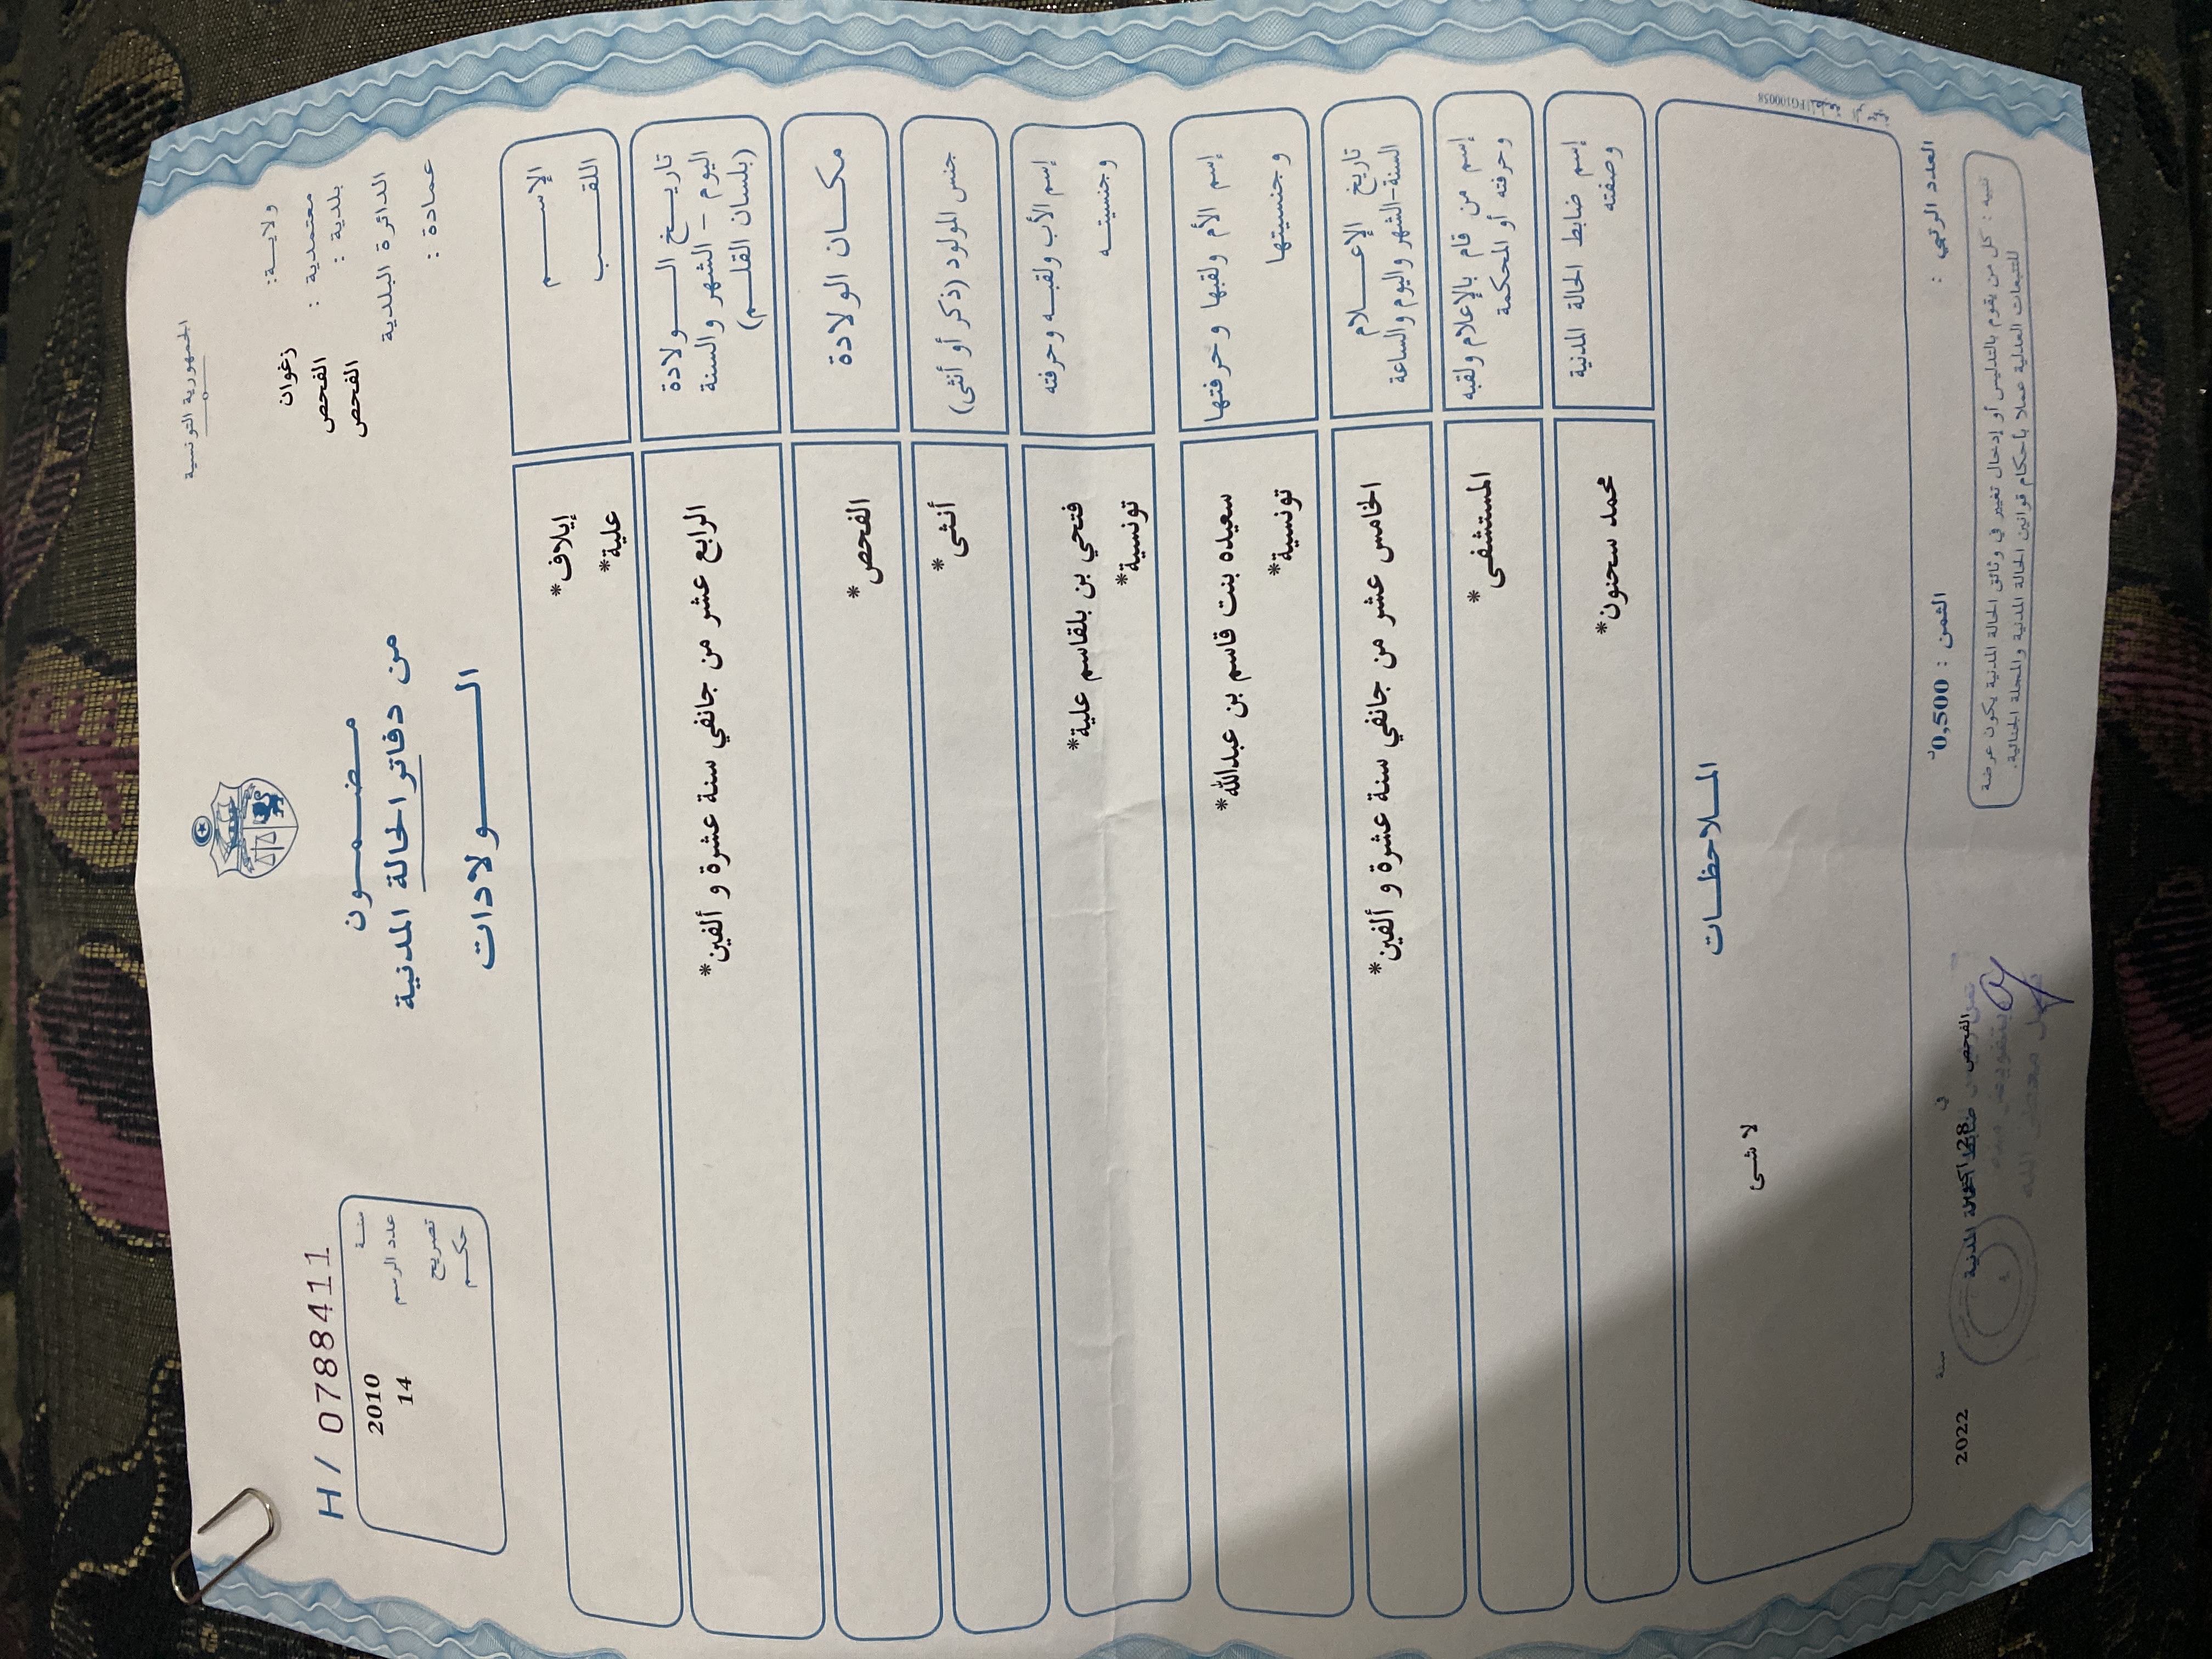 الجمهورية التونسية
ولايـــة: زغوان
معتمدية : الفحص
بلدية : الفحص
الدائرة البلدية
عمادة :
مـضـمــون
من دفاتر الحالة المدنية
الــــولادات
H / 0788411
سنـة 2010
عدد الرسم 14
تصريح
حكـــم
الإســـــم إيلاف*
اللقـــــب علية*
تاريـــخ الـــــولادة
اليوم - الشهر والسنة
(بلسان القلـــم)
الرابع عشر من جانفي سنة عشرة و ألفين*
مكـــان الولادة الفحص*
جنس المولود (ذكر أو أنثى) أنثى*
إسم الأب ولقبـــه وحرفته فتحي بن بلقاسم علية*
وجنسيتـــه تونسية*
إسم الأم ولقبها وحرفتها سعيده بنت قاسم بن عبدالله*
وجنسيتها تونسية*
تاريخ الإعـــــلام
السنة-الشهر واليوم والساعة
الخامس عشر من جانفي سنة عشرة و ألفين*
إسم من قام بالإعلام ولقبه
وحرفته أو المحكمة
المستشفى*
إسم ضابط الحالة المدنية
وصفته
محمد سحنون*
الملاحظــات
لا شئ
FG100058
العدد الرتبي :
الثمن : 0,500د
الفحص في 28 سنة 2022
ضابط الحالة المدنية
تنبيه : كل من يقوم بالتدليس أو إدخال تغيير في وثائق الحالة المدنية يكون عرضة
للتتبعات العدلية عملا بأحكام قوانين الحالة المدنية والمجلة الجنائية.